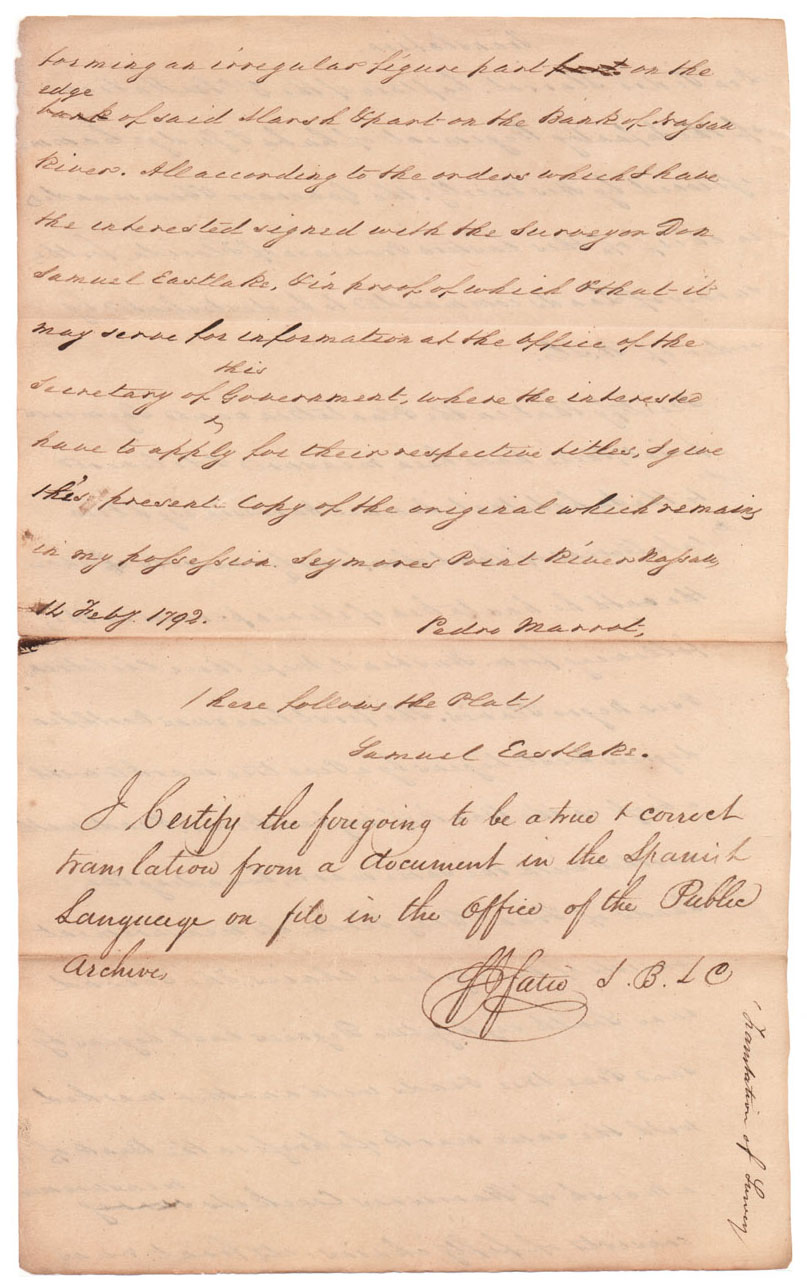 forming an irregular figure part on the
edge
bank of said Marsh & part on the Bank of Nassau
River. All according to the orders which I have
the interested signed with the Surveyor Don
Samuel Eastlake, & in proof of which & that it
may serve for information at the office of the
this
Secretary of Government, where the interested
have to apply for their respective titles, I give
this present Copy of the original which remains
in my possession. Seymores Point River Nassau,
14 Feby. 1792.
Pedro Marrot,
(here follows the Plat)
Samuel Eastlake.
I Certify the foregoing to be a true & correct
translation from a document in the Spanish
Language on file in the Office of the Public
Archives
F J Fatio S. B. L C
Translation of Survey